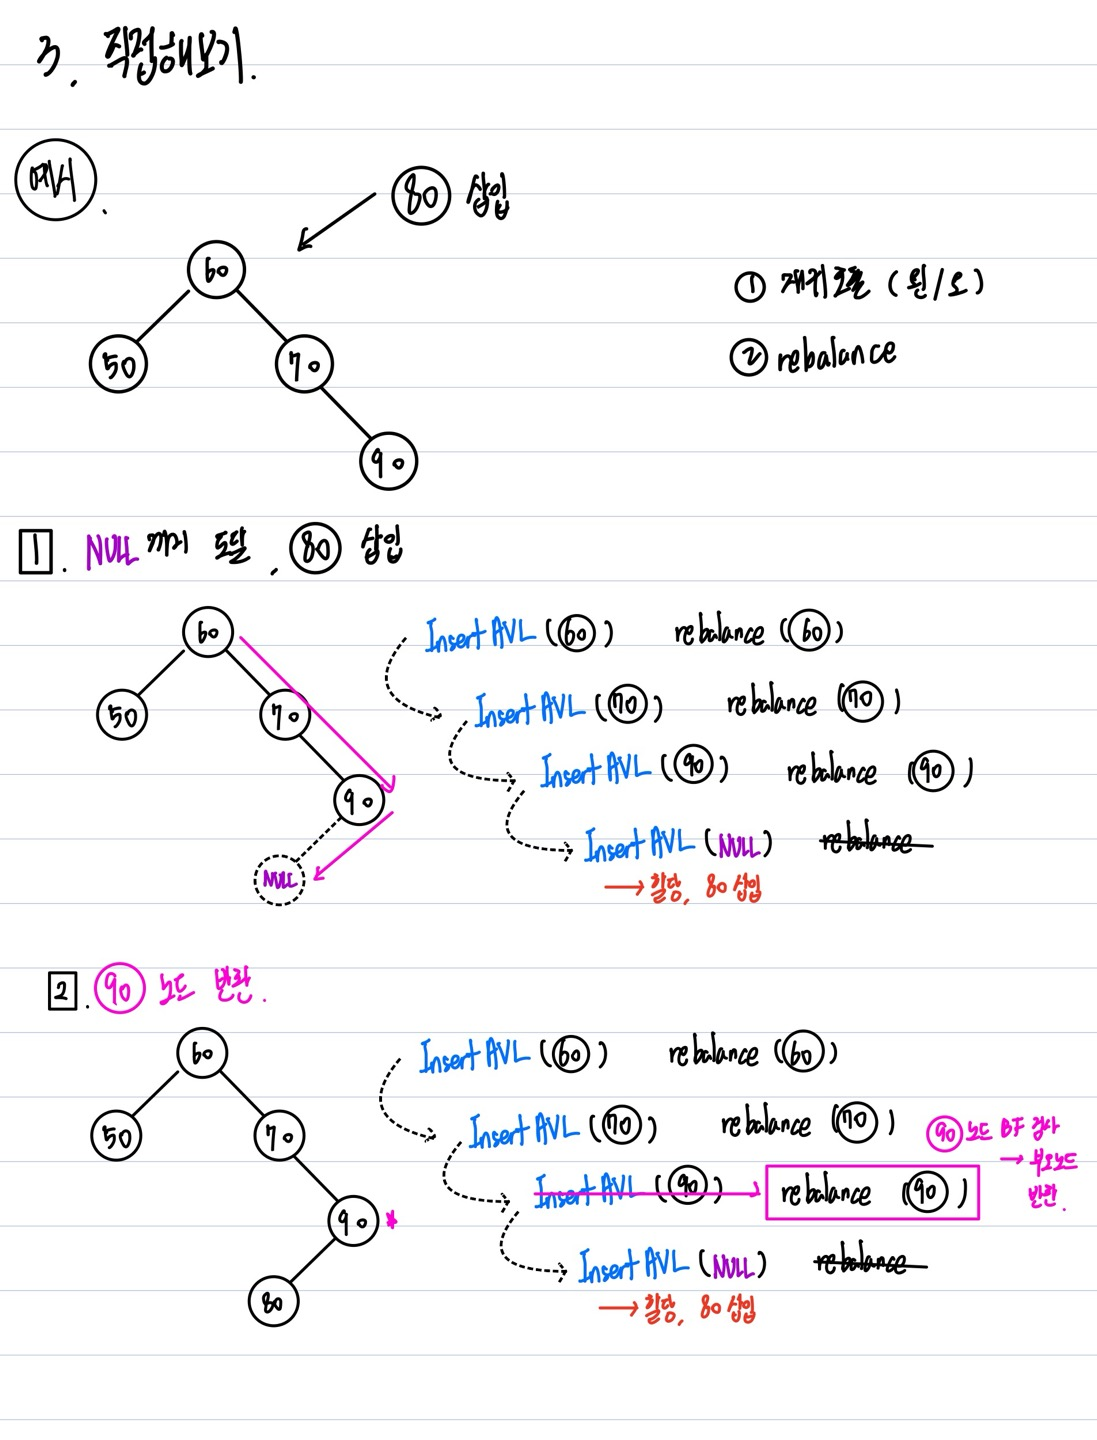 3. 직접해보기.
예시.
80 삽입
60
50 70
90
① 재귀호출 (왼/오)
② rebalance
1. NULL 까지 도달, 80 삽입
60
50 70
90
NULL
Insert AVL (60) rebalance (60)
Insert AVL (70) rebalance (70)
Insert AVL (90) rebalance (90)
Insert AVL (NULL) rebalance
→ 할당, 80 삽입
2. 90 노드 반환.
60
50 70
90 *
80
Insert AVL (60) rebalance (60)
Insert AVL (70) rebalance (70)
Insert AVL (90) rebalance (90)
Insert AVL (NULL) rebalance
→ 할당, 80 삽입
90 노드 BF 검사
→ 부모노드
반환.